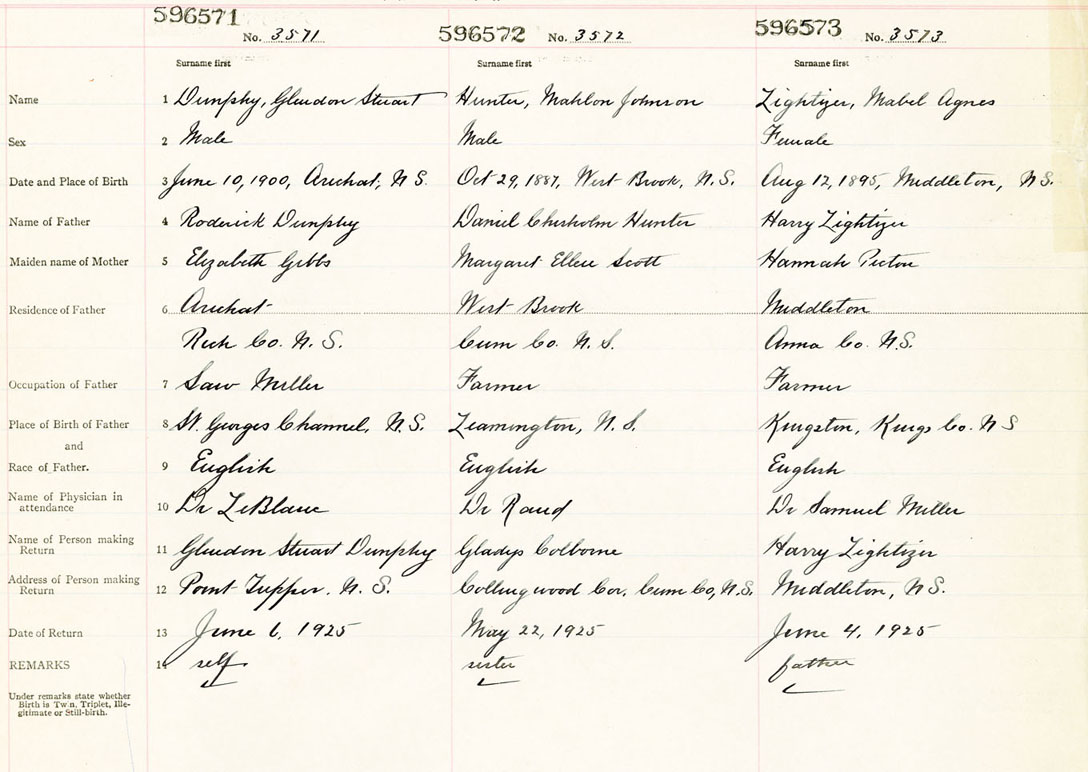 596571 No. 3571 596572 No. 3572 596573 No. 3573
Surname first Surname first Surname first
Name 1 Dunphy, Glendon Stuart Hunter, Mahlon Johnson Lightizer, Mabel Agnes
Sex 2 Male Male Female
Date and Place of Birth 3 June 10, 1900, Arichat, N S. Oct 29, 1887, West Brook, N.S. Aug 12, 1895, Middleton, N S.
Name of Father 4 Roderick Dunphy Daniel Chisholm Hunter Harry Lightizer
Maiden name of Mother 5 Elizabeth Gibbs Margaret Ellen Scott Hannah Picton
Residence of Father 6 Arichat West Brook Middleton
Rich Co. N. S. Cum Co. N. S. Anna Co. N.S.
Occupation of Father 7 Saw Miller Farmer Farmer
Place of Birth of Father 8 St. Georges Channel, N.S. Leamington, N. S. Kingston, Kings Co. N S
and
Race of Father. 9 English English English
Name of Physician in
attendance 10 Dr LeBlanc Dr Rand Dr Samuel Miller
Name of Person making
Return 11 Glendon Stuart Dunphy Gladys Colborne Harry Lightizer
Address of Person making
Return 12 Point Tupper. N. S. Collingwood Cor. Cum Co, N.S. Middleton, N S.
Date of Return 13 June 6, 1925 May 22, 1925 June 4, 1925
REMARKS 14 self sister father
Under remarks state whether
Birth is Twin, Triplet, Ille-
gitimate or Still-birth.